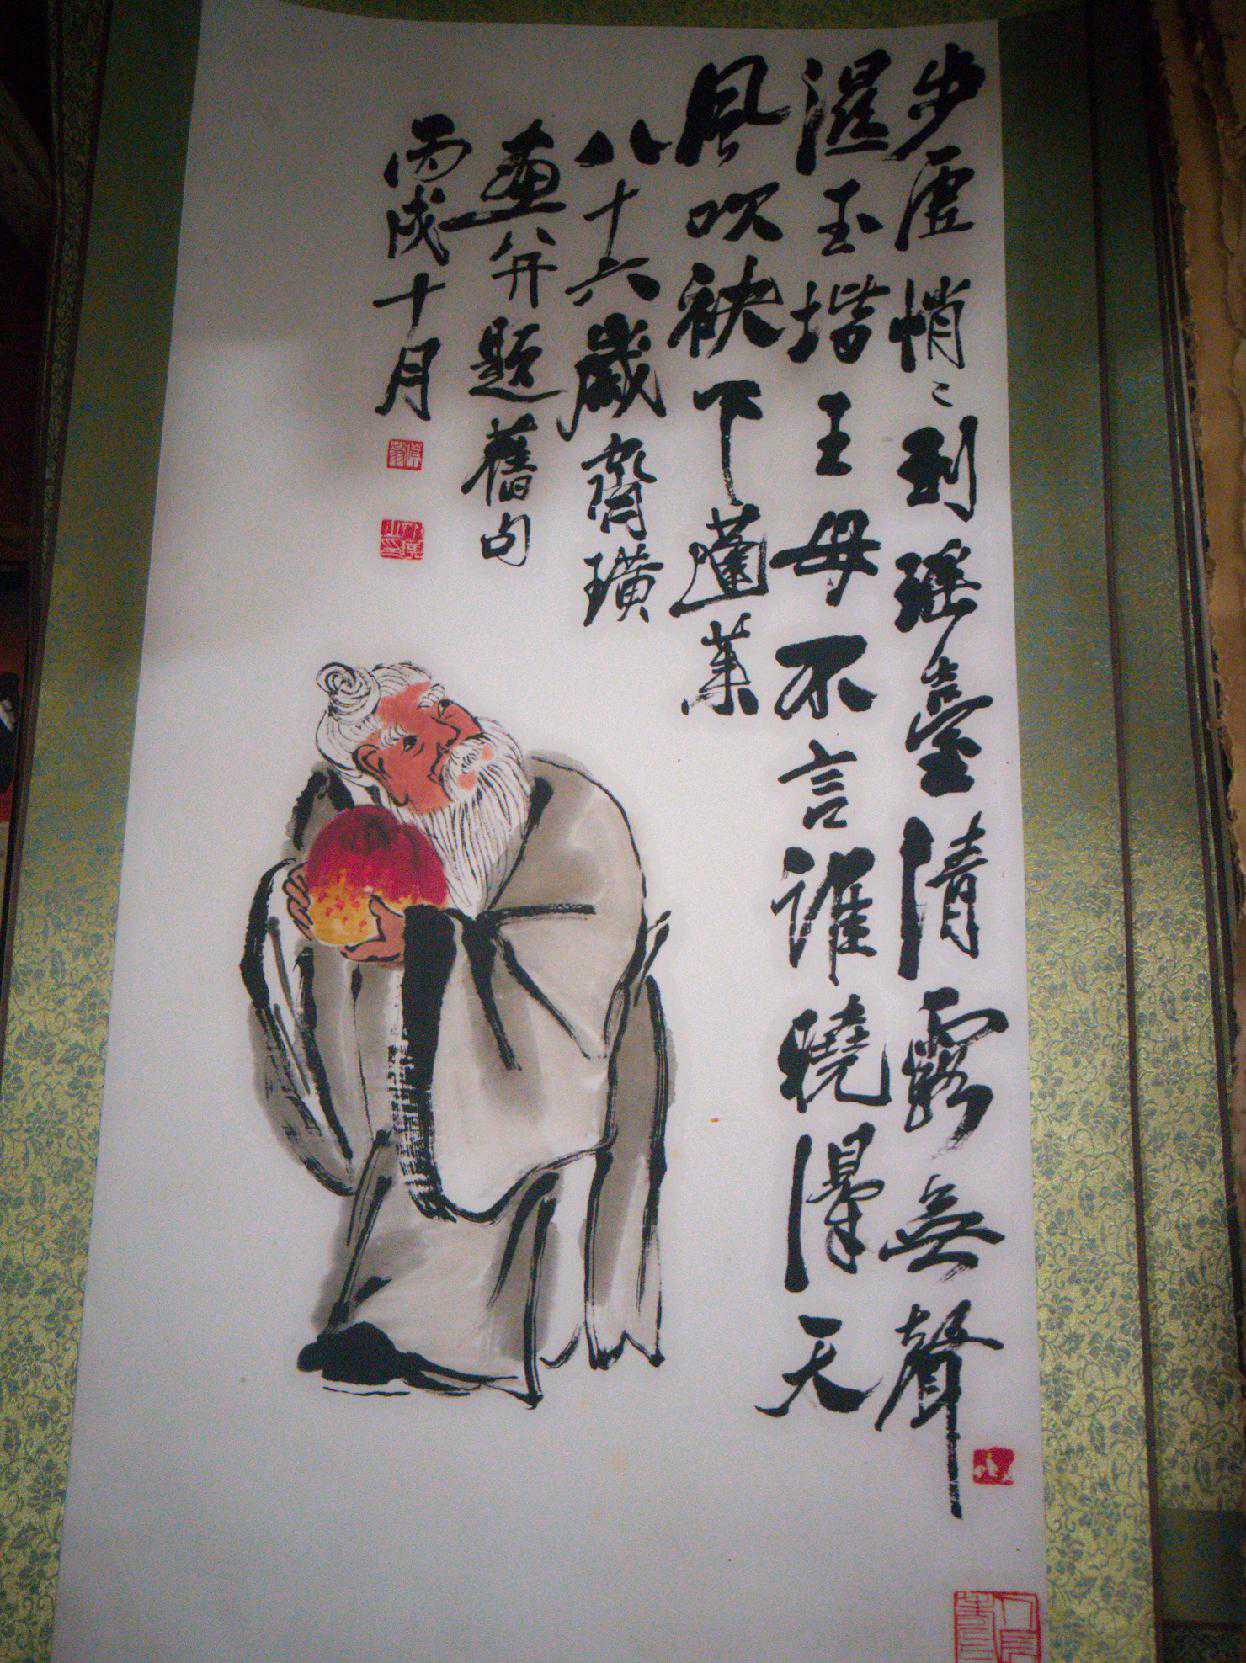 步虚悄々到瑶臺清露無聲
濕玉堦王母不言誰曉得天
風吹袂下蓬萊
八十六歲齊璜
畫并題舊句
丙戌十月